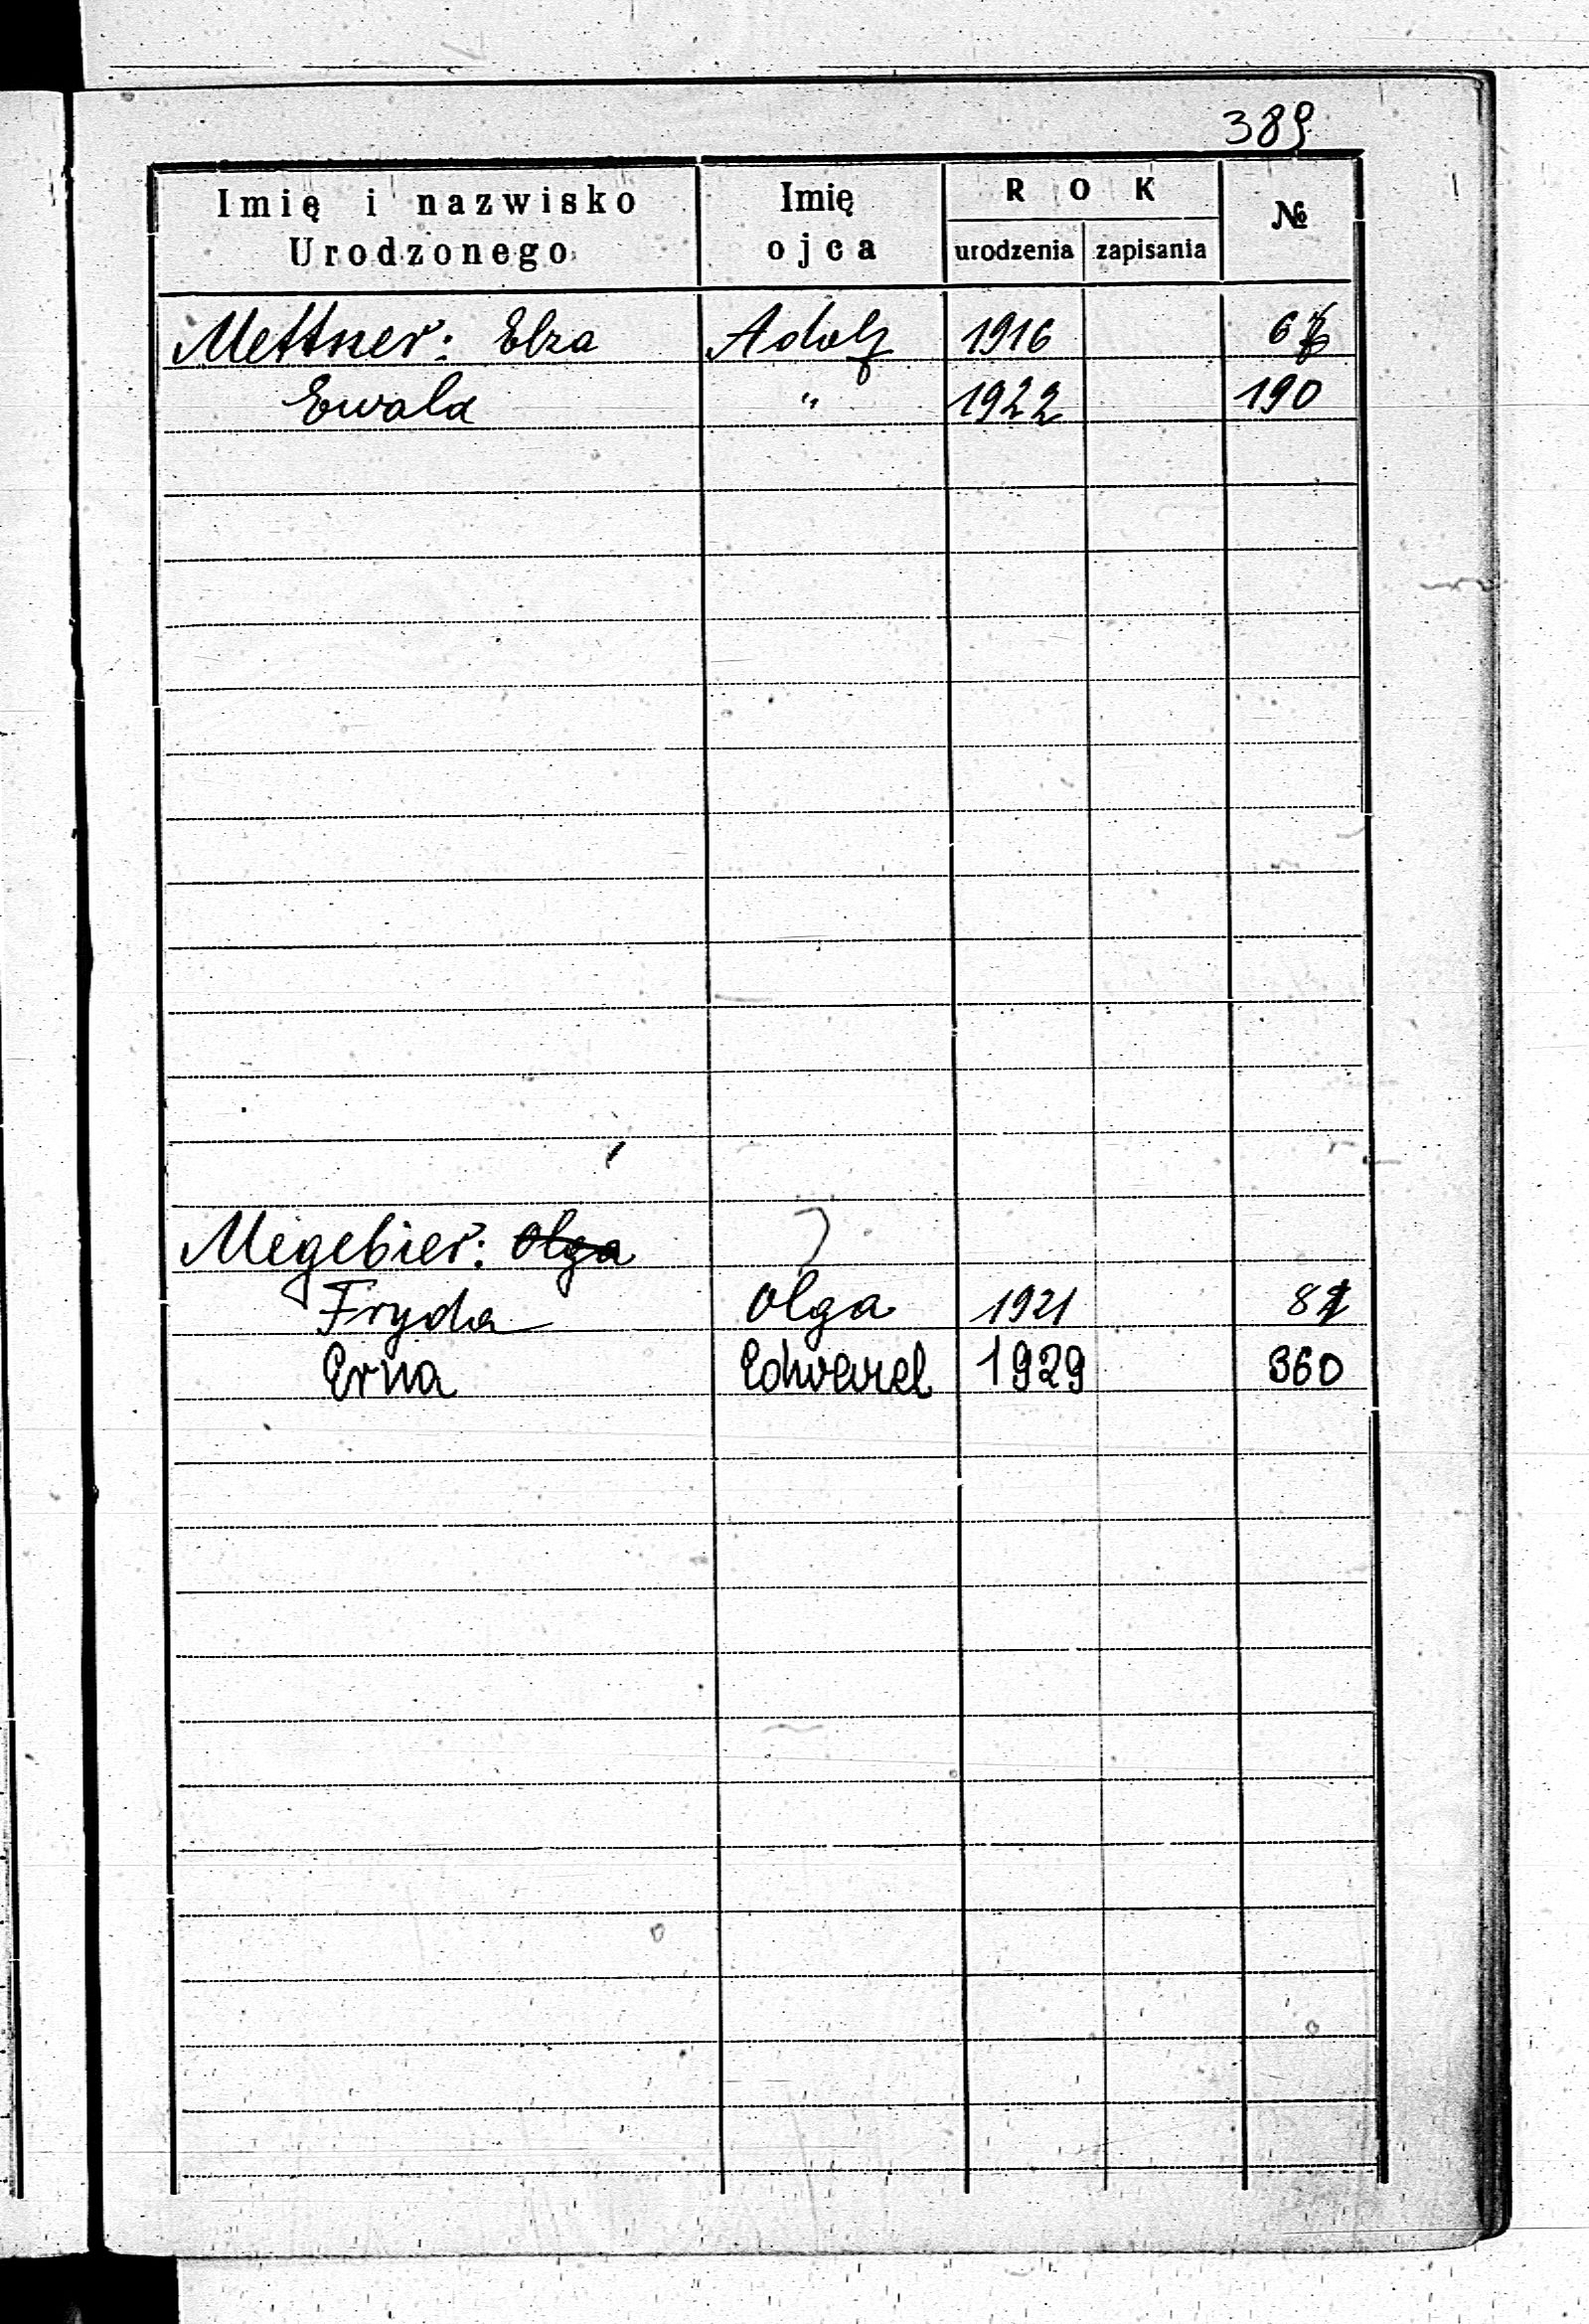 389
Imię i nazwisko Urodzonego Imię ojca ROK urodzenia zapisania №
Mettner: Elza Adolf 1916
Ewald " 1922 190
Megebier: Olga
Fryda Olga 1921
Erna Edward 1929 360